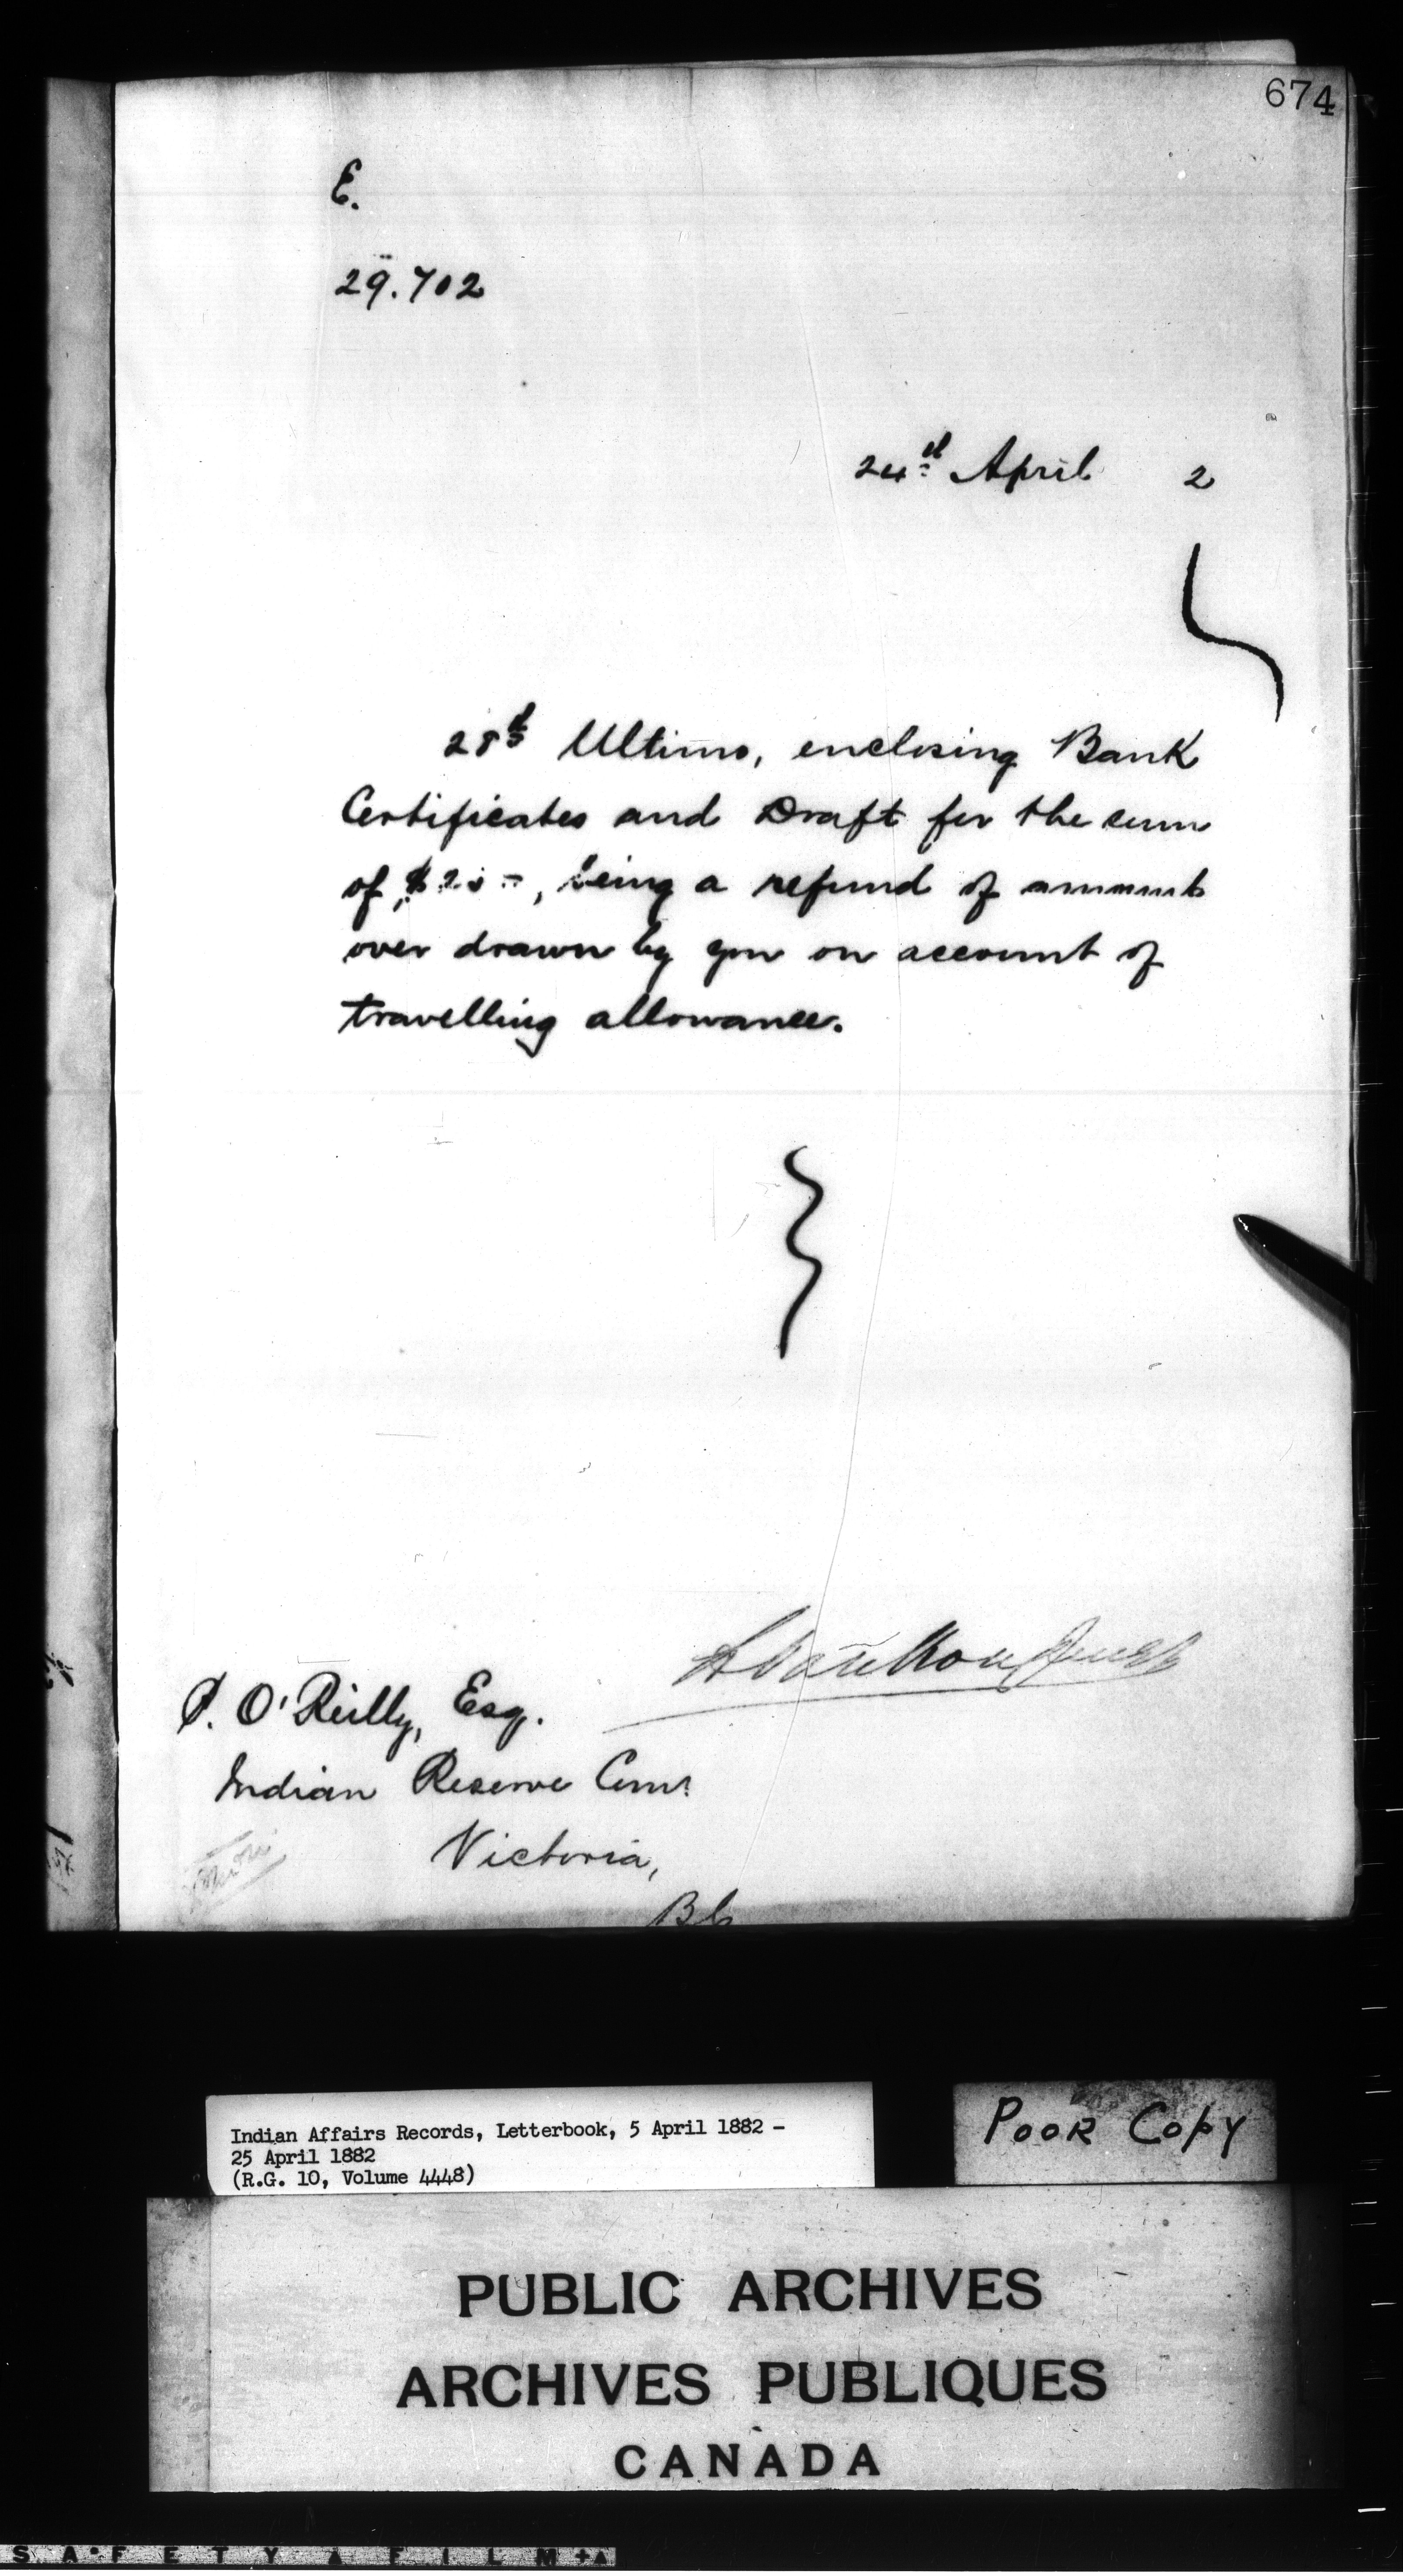 674
E.
29.702
24th April 2
28th Ultimo, enclosing Bank
Certificates and Draft for the sum
of $ being a refund of amount
over drawn by you on account of
travelling allowance.
L Vankoughnet
P. O'Reilly, Esq.
Indian Reserve Comr
Victoria,
BC
Indian Affairs Records, Letterbook, 5 April 1882 -
25 April 1882
(R.G. 10, Volume 4448)
POOR COPY
PUBLIC ARCHIVES
ARCHIVES PUBLIQUES
CANADA
SAFETY FILM